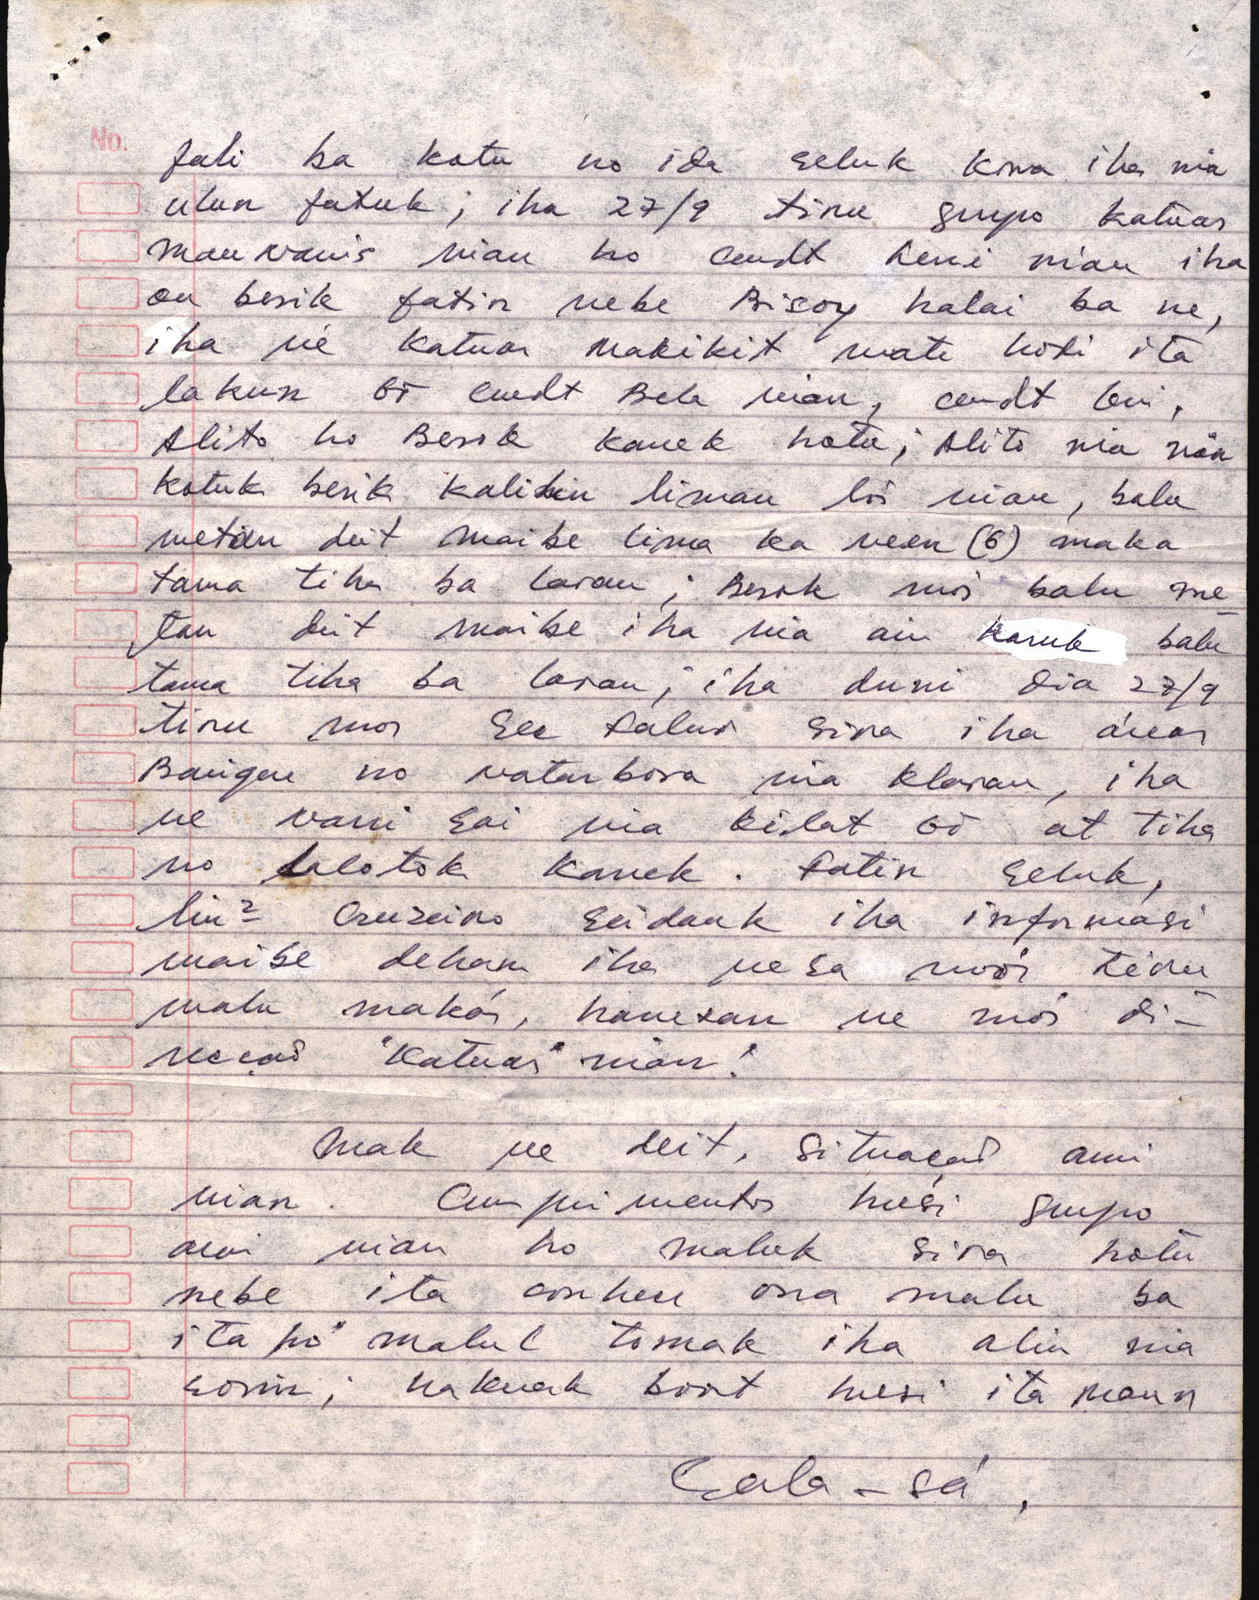 No.
fali ba kotu no ida seluk kona iha nia
ulun fatuk; iha 27/9 tiru grupo katuas
Mauwanis nian ho cmdt Leni nian iha
ou besik fatin nebe Bisoy halai ba ne,
iha né katuas Makikit mate hodi ita
lakun oi cmdt Bele nian, cmdt
Alito ho Besik kanek hotu; Alito nia iha
kotuk besik kalidin liman los nian, balu
metan deit maibe lima ka neen (6) maka
tama tiha ba laran; Besik mos balu me-
tan deit maibe iha nia ain karuk balu
tama tiha ba laran; iha duni dia 27/9
tiru mos See Falur sira iha áreas
Barique no natarbora nia klaran, iha
ne wani Sai nia kilat oi at tiha
no Lalotok kanek. Fatin Seluk,
liu² Cruzeiro seidauk iha informasi
maibe dehan iha nesa mós tiru
malu makás, hanesan ne mós di-
recçaõ "Katuas" nian!
Mak ne deit, situaçaõ ami
nian. Cumprimentos husi grupo
ami nian ho maluk sira hotu
nebe ita conhece ona malu ba
ita ho maluk tomak iha alin nia
sorin; hakuak boot husi ita maun
Lala-sá,